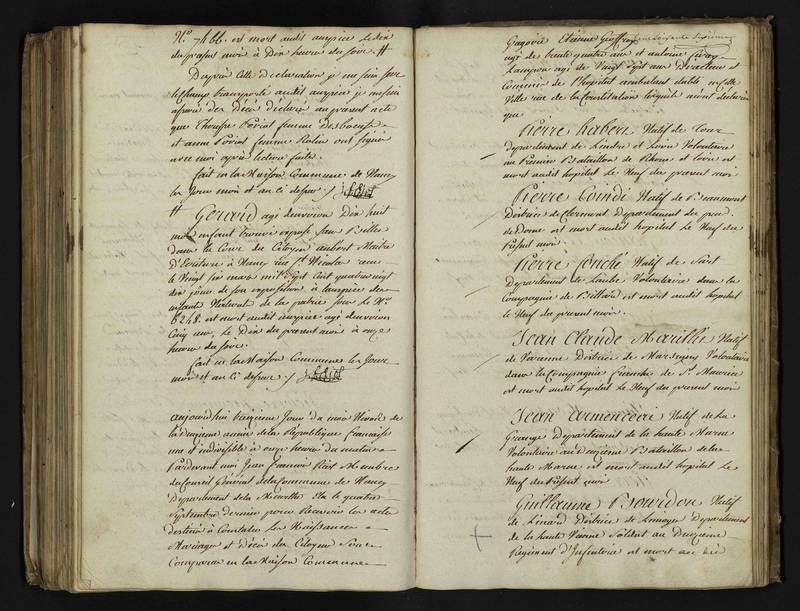 N.º 7466. est mort audit auspice le dix
du present mois à Dix heures du soir. #
D'après cette Declaration je me suis sur
le champ transporté audit auspice je me suis
assuré des Décès déclarés au present acte
que Therese Poviot femme Desboeufs
et anne Poviot femme Rolin ont signé
avec moi après lecture faite.
fait en la Maison Commune de Nancy
les Jour mois et an ci dessus ./.
# Gerard agé d'environ Dix huit
mois enfant trouvé exposé sans Billet
dans la Cour du Citoyen aubert Maitre
D'Ecriture à Nancy rue S.t Nicolas
le Vingt six mars mil sept Cent quatre vingt
dix jour de son exposition à l'auspice des
enfants Naturels de la patrie sous le N.º
8248. est mort audit auspice agé d'environ
Cinq ans, le Dix du present mois à onze
heures du soir.
fait en la Maison Commune les Jour
mois et an ci dessus ./.
aujourd'hui treizieme Jour du mois Nivose de
la deuxieme année de la République française
une et indivisible à onze heures du matin
Pardevant moi Jean francois Membre
du Conseil Général de la Commune de Nancy
Departement de la Meurthe élu le quatre
Septembre dernier pour Recevoir les actes
destinés à Constater les Naissances
Mariages et Décès des Citoyens Sont
Comparus en la Maison Commune
Etienne Geoffroy
agé de trente quatre ans et antoine
agé de Vingt sept ans Directeur et
Commis de l'hopital ambulant établi en cette
Ville rue de la Constitution lesquels m'ont déclaré
que
Pierre habert Natif de Tour
Departement de Lindre et Loire Volontaire
au Premier Bataillon de Rhone et Loire est
mort audit hopital le Neuf du present mois
Pierre Coindé Natif de Beaumont
District de Clermont Departement du puy
de Dome est mort audit hopital le Neuf du
Present mois
Pierre Natif de
Departement de Laube Volontaire dans la
Compagnie de Billard est mort audit hopital
le Neuf du present mois.
Jean Claude Marillier Natif
de Varenne District de Marsigny Volontaire
dans la Compagnie franche de S.t Maurice
est mort audit hopital le Neuf du present mois
Jean Natif de La
Grange Departement de la haute Marne
Volontaire au Deuxieme Bataillon de la
haute Marne est mort audit hopital le
Neuf du Present mois
Guillaume Bourdon Natif
de Linard District de Limoges Departement
de la haute Vienne Soldat au Deuxieme
Regiment D'Infanterie est mort au dit